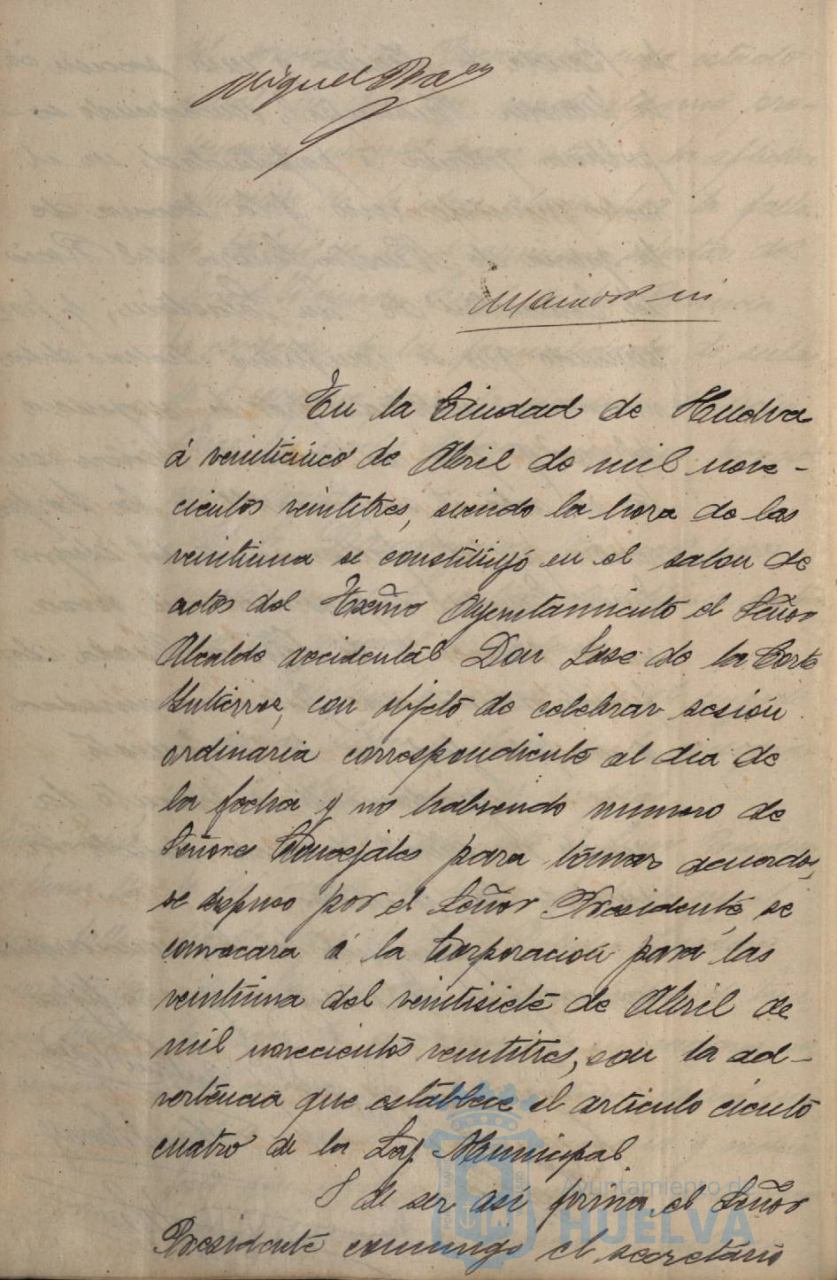 Miguel Baez
En la Ciudad de Huelva
á veinticinco de Abril de mil nove-
cientos veintitres, siendo la hora de las
veintiuna se constituyó en el salon de
actos del Excmo Ayuntamiento el Señor
Alcalde accidental Don Jose de la Corte
Gutierrez, con objeto de celebrar sesión
ordinaria correspondiente al dia de
la fecha y no habiendo numero de
Señores Concejales para tomar acuerdos,
se dispuso por el Señor Presidente, se
convocara á la Corporación para las
veintiuna del veintisiete de Abril de
mil novecientos veintitres, con la ad-
vertencia que establece el articulo ciento
cuatro de la Ley Municipal
Y de ser asi firma el Señor
Presidente conmigo el secretario
Ayuntamiento de
HUELVA